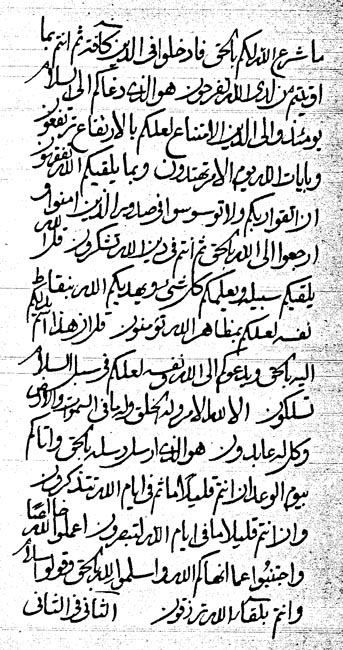 ما شرع الله لكم بالحق فادخلوا في الدين كافة ثم انتم بما
اوتيتم من لدى الله لتفرحون هو الذي دعاكم الى السلام
يومئذ والى الدين الامتناع لعلكم بالارتفاع ترتفعون
وبايات الله يوم الامر تهتدون وبما يلقيكم الله تفقهون
ان اتقوا ربكم ولا توسوسوا في صدور الذين امنوا و
ارجعوا الى الله بالحق ثم انتم في دين الله تشكرون قل الله
يلقيكم سبيله ويعلمكم كل شيء ويهديكم الله بنقاط
نفسه لعلكم بمظاهر الله تؤمنون قل ان هذا انتم
اليه بالحق ويدعوكم الى الله نفسه لعلكم في سبل السلام
تسلكون الا لله الامر وله الخلق وما في السموات والارض
وكل له عابدون هو الذي ارسل رسله بالحق واتاكم
بيوم الوعد ان انتم قليلا ما انتم في ايام الله تتذكرون
وان انتم قليلا ما في ايام الله لتبصرون اعملوا لله
واجتنبوا عما انهاكم الله واسلموا لله بالحق وقولوا سلام
وانتم بلقاء الله ترزقون الثاني في الثاني